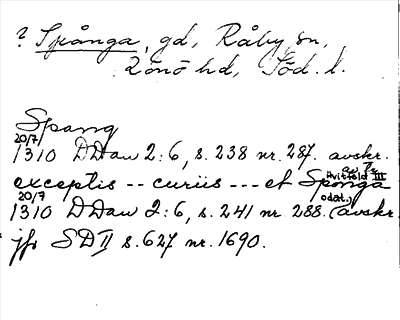 ? Spånga, gd, Råby sn,
Rönö hd, Söd. l.
Spang
20/7
1310 DDan 2:6, s. 238 nr. 287. avskr.
exceptis -- curiis --- et Sponga
Hvitfeld III
20/7
1310 DDan 2:6, s. 241 nr 288. (avskr.
odat.)
jfr SD II s. 627 nr. 1690.